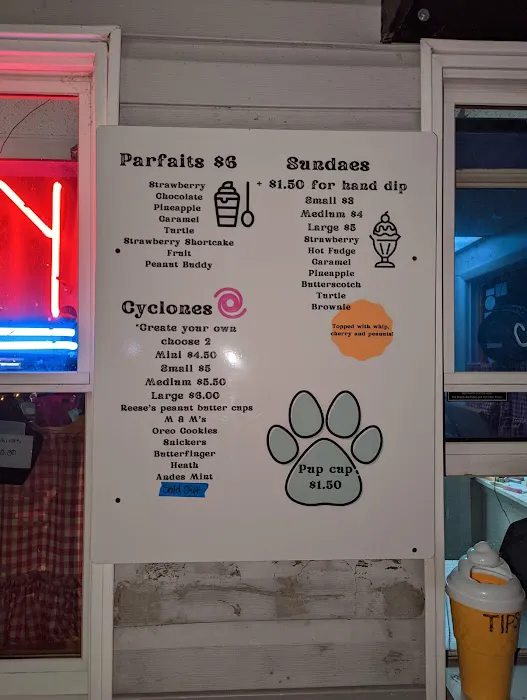 Parfaits $6
Strawberry
Chocolate
Pineapple
Caramel
Turtle
Strawberry Shortcake
Fruit
Peanut Buddy
Sundaes
+ $1.50 for hand dip
Small $3
Medium $4
Large $5
Strawberry
Hot Fudge
Caramel
Pineapple
Butterscotch
Turtle
Brownie
Topped with whip,
cherry and peanuts!
Cyclones
*Create your own
choose 2
Mini $4.50
Small $5
Medium $5.50
Large $6.00
Reese's peanut butter cups
M & M's
Oreo Cookies
Snickers
Butterfinger
Heath
Andes Mint
Sold Out
Pup cup
$1.50
TIPS